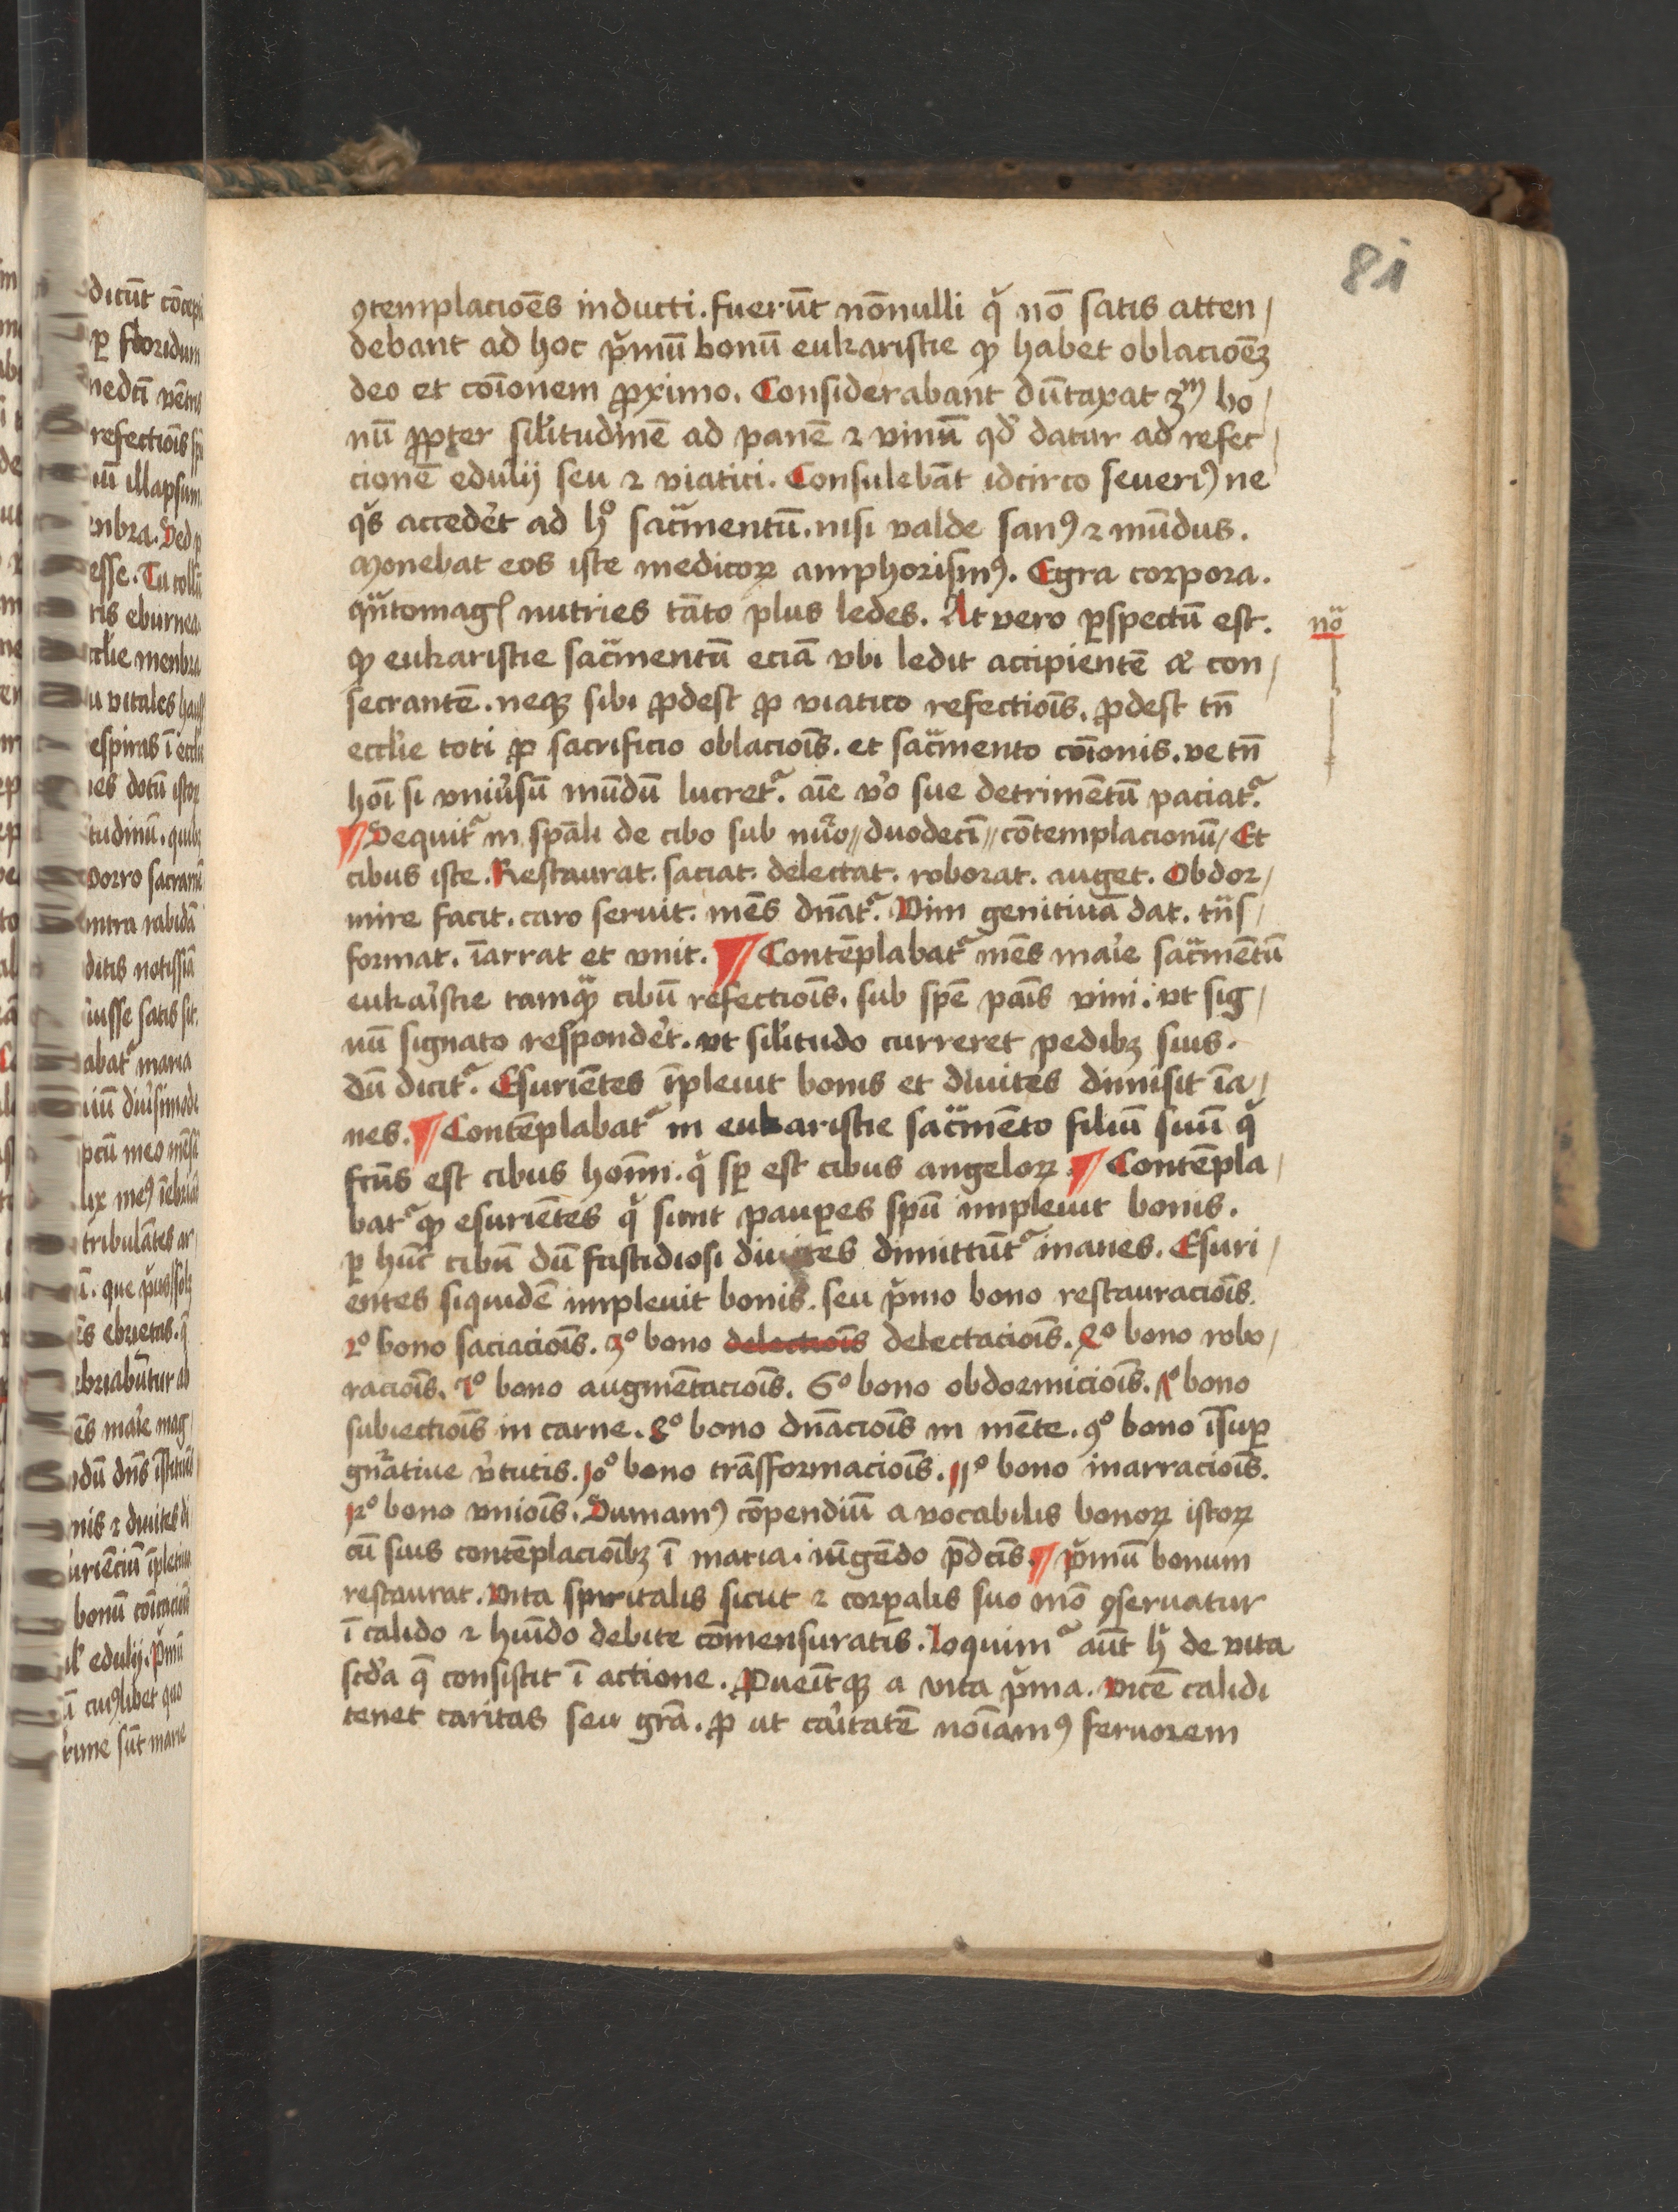 81
ꝯtemplacioēs inducti. fuerūt nōnulli qͥ nō satis atten/
debant ad hoc pͥmū bonū eukaristie ꝙ habet oblacioēꝫ
deo et cōīonem ꝓximo. Considerabant dūtaxat 3ᵐ bo/
nū ꝓpter sil̕itudinē ad panē ⁊ vinū qd̕ datur ad refec/
cionē edulij seu ⁊ viatici. Consulebāt idcirco seueriꝰ ne
qͥs acceder̕t ad hͦ sacͣmentū. nisi valde sanꝰ ⁊ mūdus.
Monebat eos iste medicoꝝ amphorismꝰ. Egra corpora.
qͣntomagꝭ nutries tāto plus ledes. At vero ꝑspectū est.
nō
ꝙ eukaristie sacͣmentū eciā vbi ledit accipientē aꝉ con/
secrantē. neqꝫ sibi ꝓdest ꝓ viatico refectiois̄. ꝓdest tn̄
eccl̕ie toti ꝓ sacrificio oblaciois̄. et sacͣmento cōīonis. ve tn̄
hoī si vniu̕sū mūdū lucretᷣ. aīe v̕o sue detrimētū paciatᷣ.
¶ Sequitᷣ in spāli de cibo sub nu̕o // duodecī // cōtemplacionū / Et
cibus iste. Restaurat. saciat. delectat. roborat. auget. Obdor/
mire facit. caro seruit. mēs dn̄atᷣ. Vim genitiuā dat. tn̄s/
format. īarrat et vnit. ¶ Contēplabatᷣ mēs mar̕ie sacͣmētū
eukar̕istie tamqͣꝫ cibū refectiois̄. sub spē pais̄ vini. vt sig/
nū signato responder̕t. vt sil̕itudo curreret pedibꝫ suis.
dū dicitᷣ. Esuriētes īpleuit bonis et diuites dimisit īa/
nes. ¶ Contēplabatᷣ in eukaristie sacͣmēto filiū suū qͥ
fcūs est cibus hoīm. qͥ sꝑ est cibus angeloꝝ ¶ Contēpla/
batᷣ ꝙ esuriētes qͥ sunt pauꝑes spū impleuit bonis.
ꝑ hūc cibū dū fastidiosi diuites dimittūtᷣ inanes. Esuri/
entes siquidē impleuit bonis. seu pͥmo bono restauraciois̄.
2ͦ bono saciaciois̄. 3ͦ bono delectiois̄ delectaciois̄. 4ͦ bono robo/
raciois̄. 5ͦ bono augmētaciois̄. 6ͦ bono obdormiciois̄. 7ͦ bono
subiectiois̄ in carne. 8ͦ bono dn̄aciois̄ in mēte. 9ͦ bono īsuꝑ
gn̄ratiue v̕tutis. 10ͦ bono trāsformaciois̄. 11ͦ bono inarraciois̄.
12ͦ bono vniois̄. Sumamꝰ cōpendiū a vocabulis bonoꝝ istoꝝ
cū suis contēplacioībꝫ ī maria. iūgēdo p̄dcīs. ¶ pͥmū bonum
restaurat. Vita spiritalis sicut ⁊ corꝑalis suo mō ꝯseruatur
ī calido ⁊ huīdo debite cōmensuratis. Loquimᷣ aūt hͥ de vita
scd̕a q̄ consistit ī actione. ꝓueītqꝫ a vita pͥma. Vicē calidi
tenet caritas seu grā. ꝓ ut car̕itatē noīamꝰ feruorem